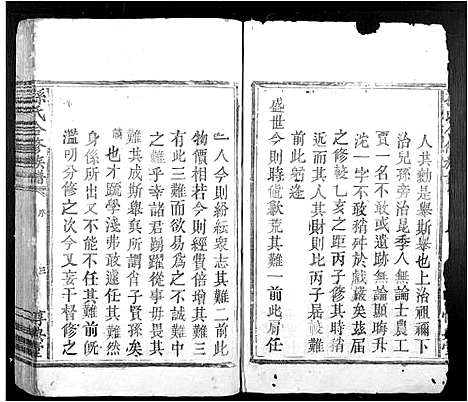 人其勷是舉斯舉也上治祖禰下
治兒孫旁治昆季凡無論士農工
賈一名不敢或遺跡無論晦升
沈一字不敢稍舛於戲嚴矣茲屆
之修較乙亥之距丙子修其時稍
遠而其人其財則比丙子較難
前此躬逢
盛世今則時歉荒其難一前此肩任
一二人今則紛紜衆志其難二前此
物價相若今則經費倍增其難三
有此三難而欲易爲之不誠難中
之難乎幸諸君踴躍從事毋畏其
難其成斯舉其所謂肖子賢孫矣
也才疏學淺弗敢遽任其難然
身係所出又不能不任其難前旣
濫明分修之次今又妄干督修之
孫氏合修族譜
序
三